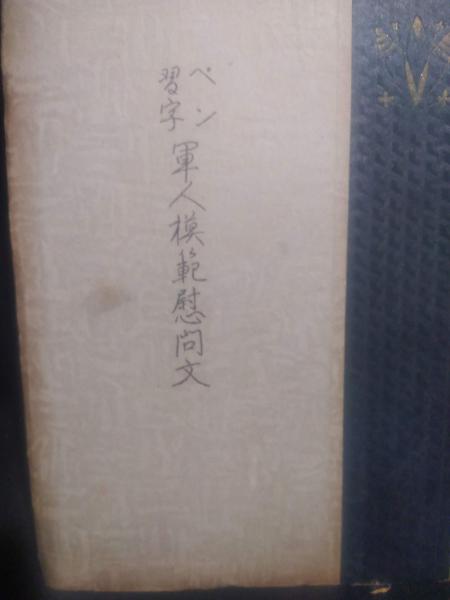 ペン
習字
軍人模範慰问文